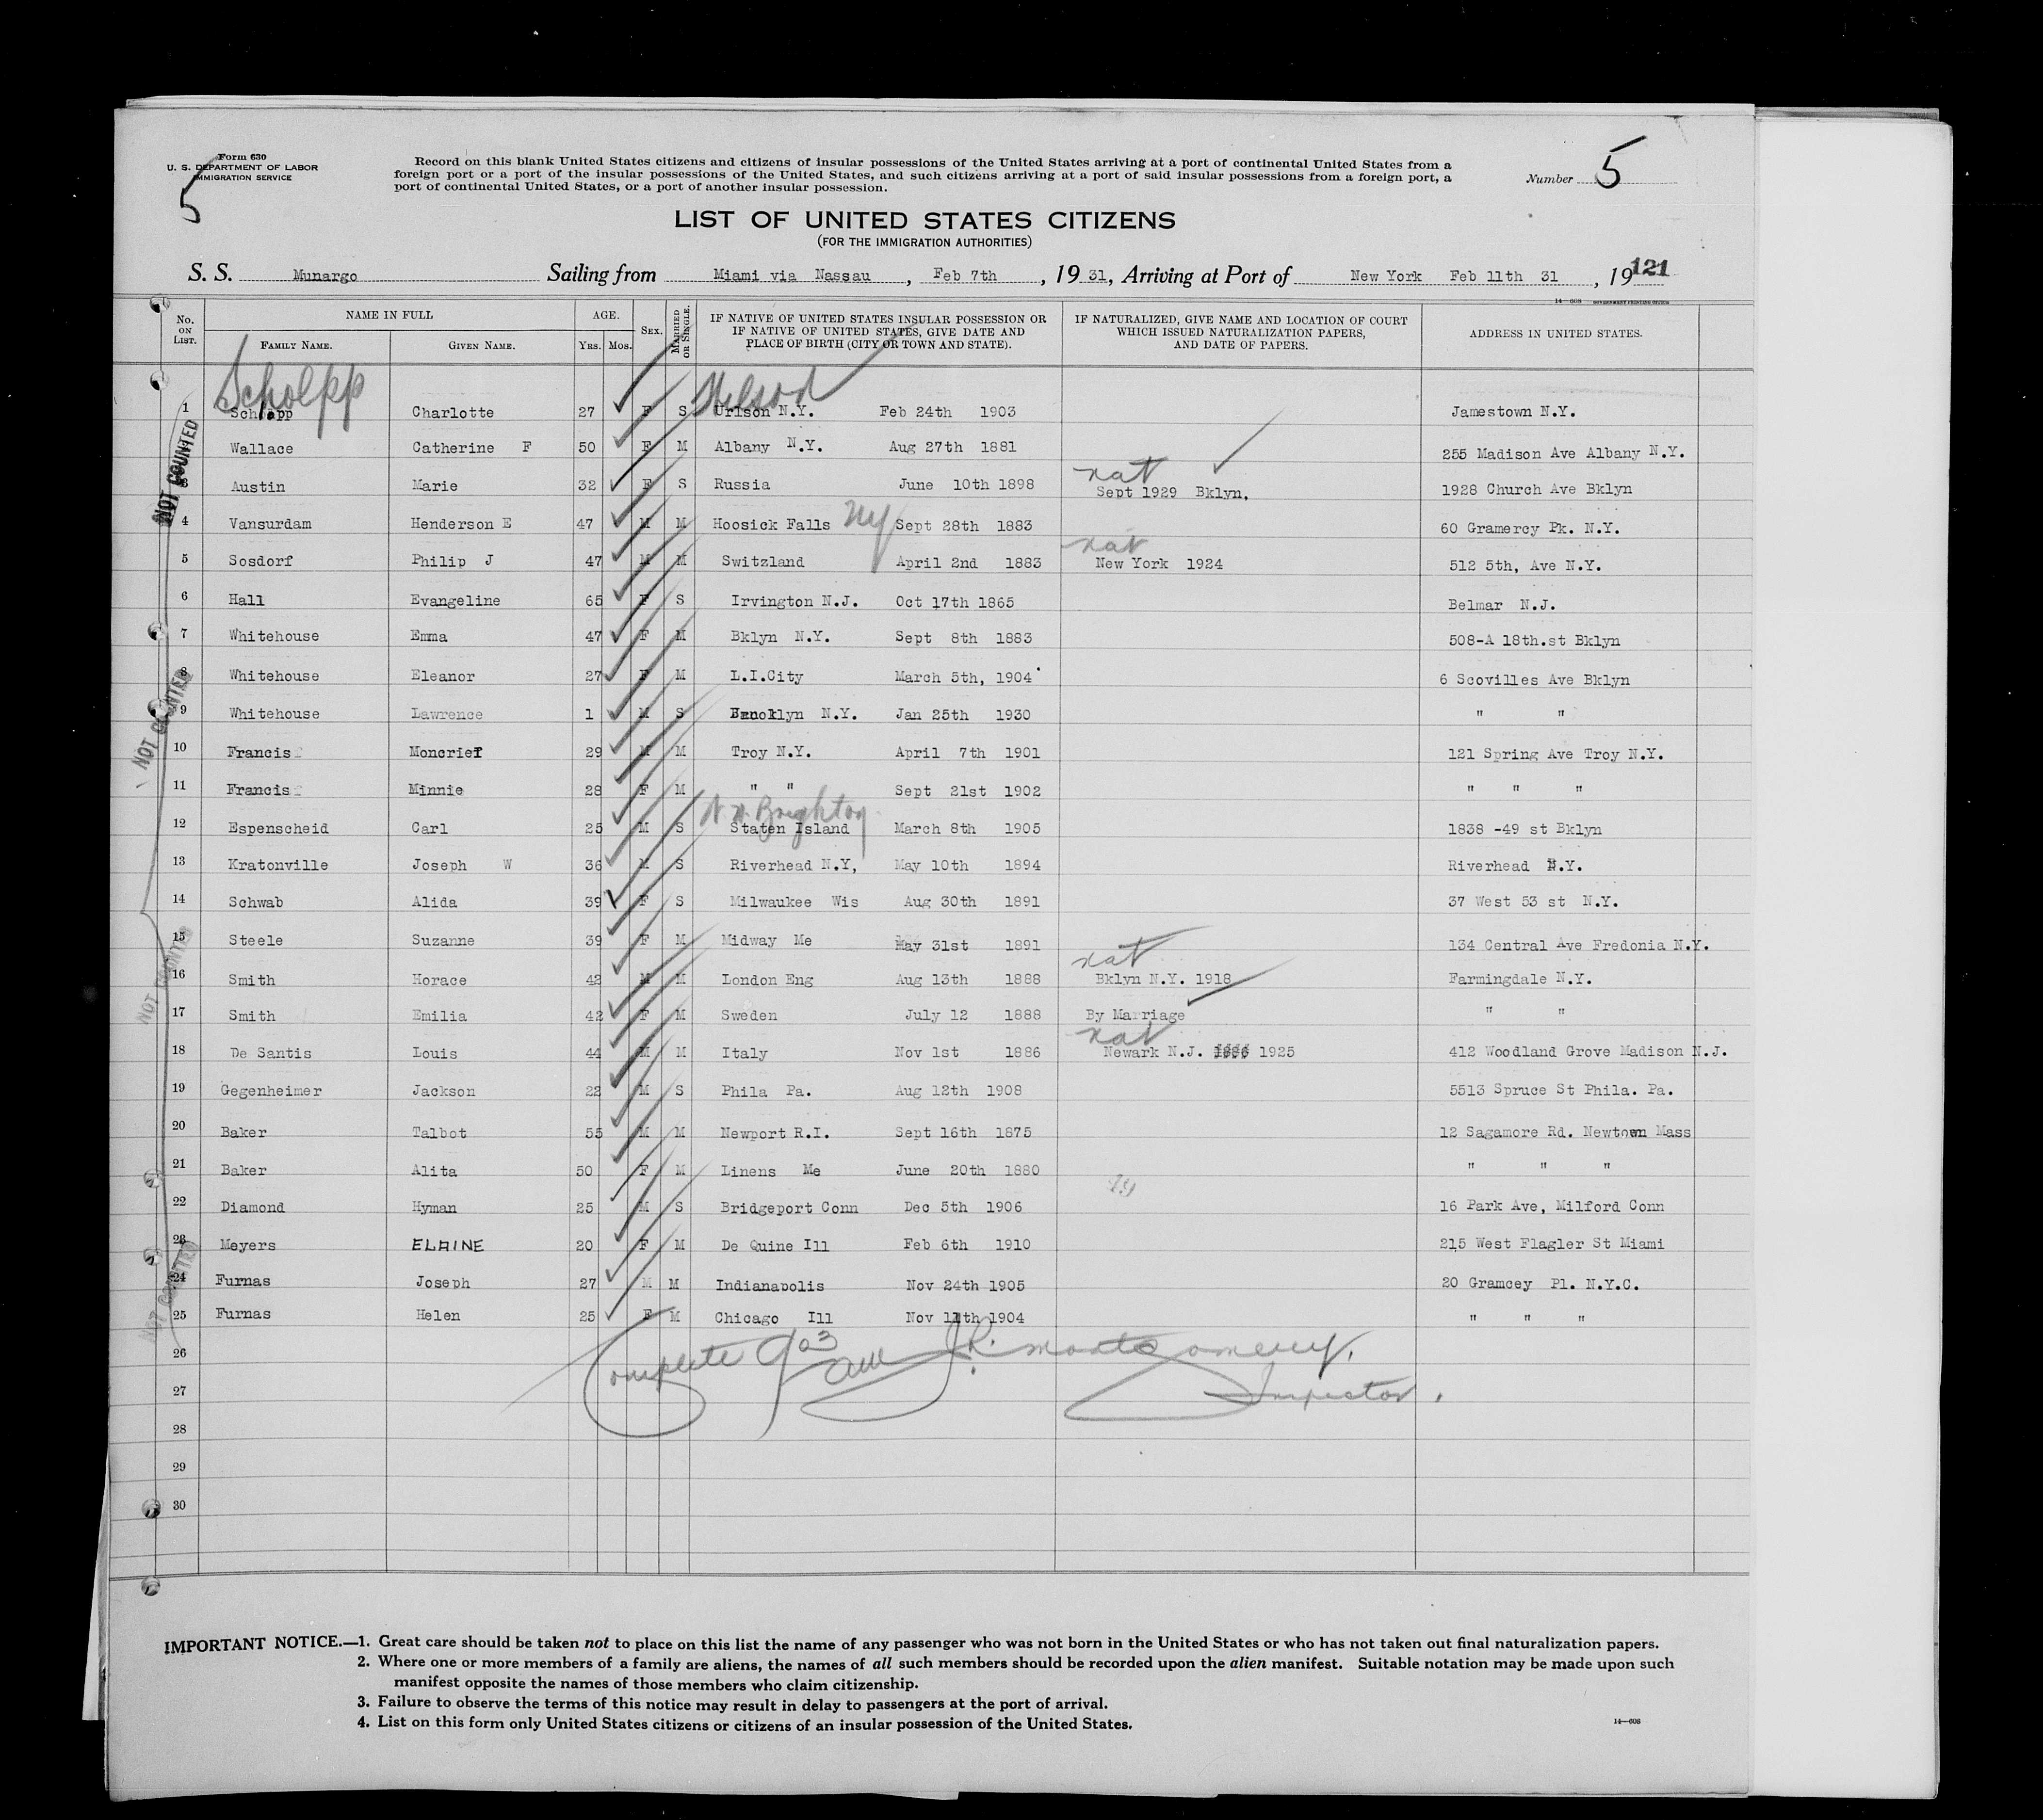 Form 630
U. S. DEPARTMENT OF LABOR
IMMIGRATION SERVICE
5
Record on this blank United States citizens and citizens of insular possessions of the United States arriving at a port of continental United States from a
foreign port or a port of the insular possessions of the United States, and such citizens arriving at a port of said insular possessions from a foreign port, a
port of continental United States, or a port of another insular possession.
Number 5
LIST OF UNITED STATES CITIZENS
(FOR THE IMMIGRATION AUTHORITIES)
S. S. Munargo Sailing from Miami via Nassau, Feb 7th, 19 31, Arriving at Port of New York Feb 11th 31, 19 121
No. ON LIST. NAME IN FULL AGE. SEX. MARRIED OR SINGLE. IF NATIVE OF UNITED STATES INSULAR POSSESSION OR IF NATIVE OF UNITED STATES, GIVE DATE AND PLACE OF BIRTH (CITY OR TOWN AND STATE). IF NATURALIZED, GIVE NAME AND LOCATION OF COURT WHICH ISSUED NATURALIZATION PAPERS, AND DATE OF PAPERS. ADDRESS IN UNITED STATES.
FAMILY NAME. GIVEN NAME. YRS. MOS.
Schoepp
1 Charlotte 27 F S Urlson N.Y. Feb 24th 1903 Jamestown N.Y.
2 Wallace Catherine F 50 F M Albany N.Y. Aug 27th 1881 255 Madison Ave Albany N.Y.
nat
3 Austin Marie 32 F S Russia June 10th 1898 Sept 1929 Bklyn, 1928 Church Ave Bklyn
4 Vansurdam Henderson E 47 M M Hoosick Falls NY Sept 28th 1883 60 Gramercy Pk. N.Y.
nat
5 Sosdorf Philip J 47 M M Switzland April 2nd 1883 New York 1924 512 5th, Ave N.Y.
6 Hall Evangeline 65 F S Irvington N.J. Oct 17th 1865 Belmar N.J.
7 Whitehouse Emma 47 F M Bklyn N.Y. Sept 8th 1883 508-A 18th.st Bklyn
8 Whitehouse Eleanor 27 F M L.I.City March 5th, 1904 6 Scovilles Ave Bklyn
9 Whitehouse Lawrence 1 M S Brooklyn N.Y. Jan 25th 1930 " "
10 Francis Moncrief 29 M M Troy N.Y. April 7th 1901 121 Spring Ave Troy N.Y.
11 Francis Minnie 28 F M " " Sept 21st 1902 " " "
Brighton
12 Espenscheid Carl 25 M S Staten Island March 8th 1905 1838 -49 st Bklyn
13 Kratonville Joseph W 36 M S Riverhead N.Y, May 10th 1894 Riverhead N.Y.
14 Schwab Alida 39 F S Milwaukee Wis Aug 30th 1891 37 West 53 st N.Y.
15 Steele Suzanne 39 F M Midway Me May 31st 1891 134 Central Ave Fredonia N.Y.
nat
16 Smith Horace 42 M M London Eng Aug 13th 1888 Bklyn N.Y. 1918 Farmingdale N.Y.
17 Smith Emilia 42 F M Sweden July 12 1888 By Marriage " "
nat
18 De Santis Louis 44 M M Italy Nov 1st 1886 Newark N.J. 1925 412 Woodland Grove Madison N.J.
19 Gegenheimer Jackson 22 M S Phila Pa. Aug 12th 1908 5513 Spruce St Phila. Pa.
20 Baker Talbot 55 M M Newport R.I. Sept 16th 1875 12 Sagamore Rd. Newtown Mass
21 Baker Alita 50 F M Linens Me June 20th 1880 " " "
22 Diamond Hyman 25 M S Bridgeport Conn Dec 5th 1906 16 Park Ave, Milford Conn
23 Meyers ELAINE 20 F M De Quine Ill Feb 6th 1910 215 West Flagler St Miami
24 Furnas Joseph 27 M M Indianapolis Nov 24th 1905 20 Gramcey Pl. N.Y.C.
25 Furnas Helen 25 F M Chicago Ill Nov 11th 1904 " " "
26 Complete J.R. Montgomery,
27 Inspector.
28
29
30
NOT COUNTED
NOT COUNTED
NOT COUNTED
NOT COUNTED
IMPORTANT NOTICE.—1. Great care should be taken not to place on this list the name of any passenger who was not born in the United States or who has not taken out final naturalization papers.
2. Where one or more members of a family are aliens, the names of all such members should be recorded upon the alien manifest. Suitable notation may be made upon such
manifest opposite the names of those members who claim citizenship.
3. Failure to observe the terms of this notice may result in delay to passengers at the port of arrival.
4. List on this form only United States citizens or citizens of an insular possession of the United States.
14—608